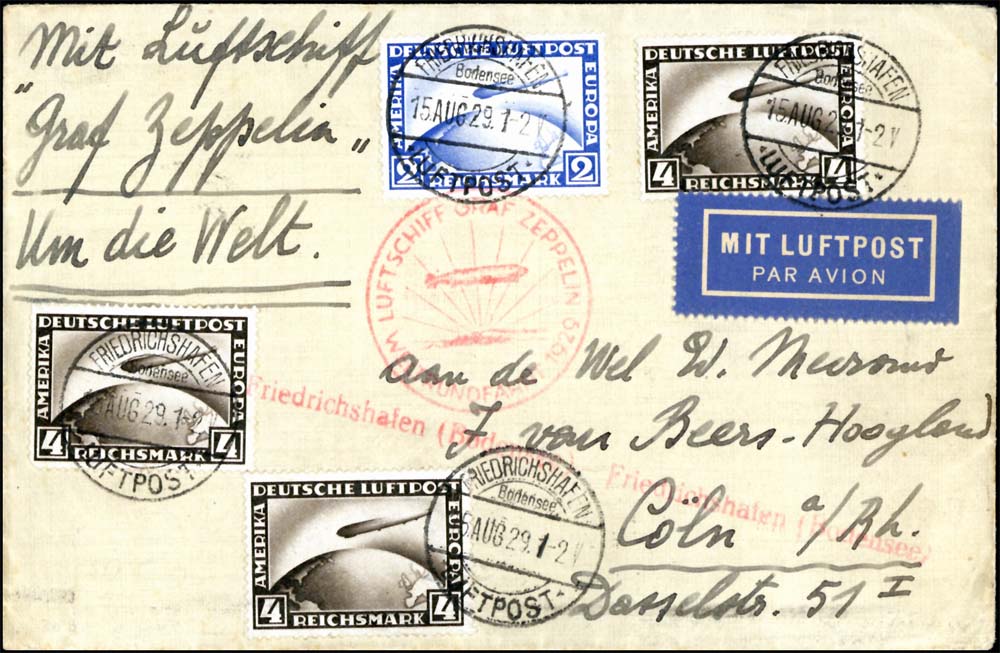 Mit Luftschiff
"Graf Zeppelin"
Um die Welt.
DEUTSCHE LUFTPOST
AMERIKA
EUROPA
2 REICHSMARK 2
FRIEDRICHSHAFEN
Bodensee
15.AUG 29.1-2 V
*LUFTPOST*
DEUTSCHE LUFTPOST
AMERIKA
EUROPA
4 REICHSMARK 4
FRIEDRICHSHAFEN
Bodensee
15.AUG 29.1-2 V
*LUFTPOST*
MIT LUFTPOST
PAR AVION
LUFTSCHIFF GRAF ZEPPELIN 1929
DEUTSCHE LUFTPOST
AMERIKA
EUROPA
4 REICHSMARK 4
FRIEDRICHSHAFEN
Bodensee
AUG 29.1-2
LUFTPOST
aan de Wel W.
J. van Beers-Hoogland
Cöln a/Rh.
Dasselstr. 51 I
Friedrichshafen (Bodensee) - Friedrichshafen (Bodensee)
DEUTSCHE LUFTPOST
AMERIKA
EUROPA
4 REICHSMARK 4
FRIEDRICHSHAFEN
Bodensee
5.AUG 29.1-2 V
LUFTPOST*